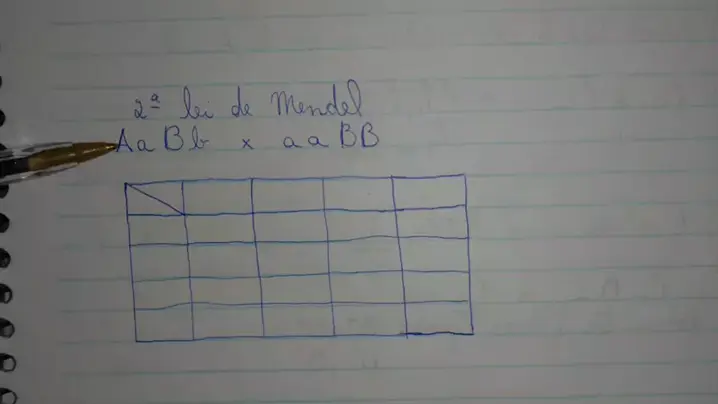 2ª lei de Mendel
AaBb x aaBB